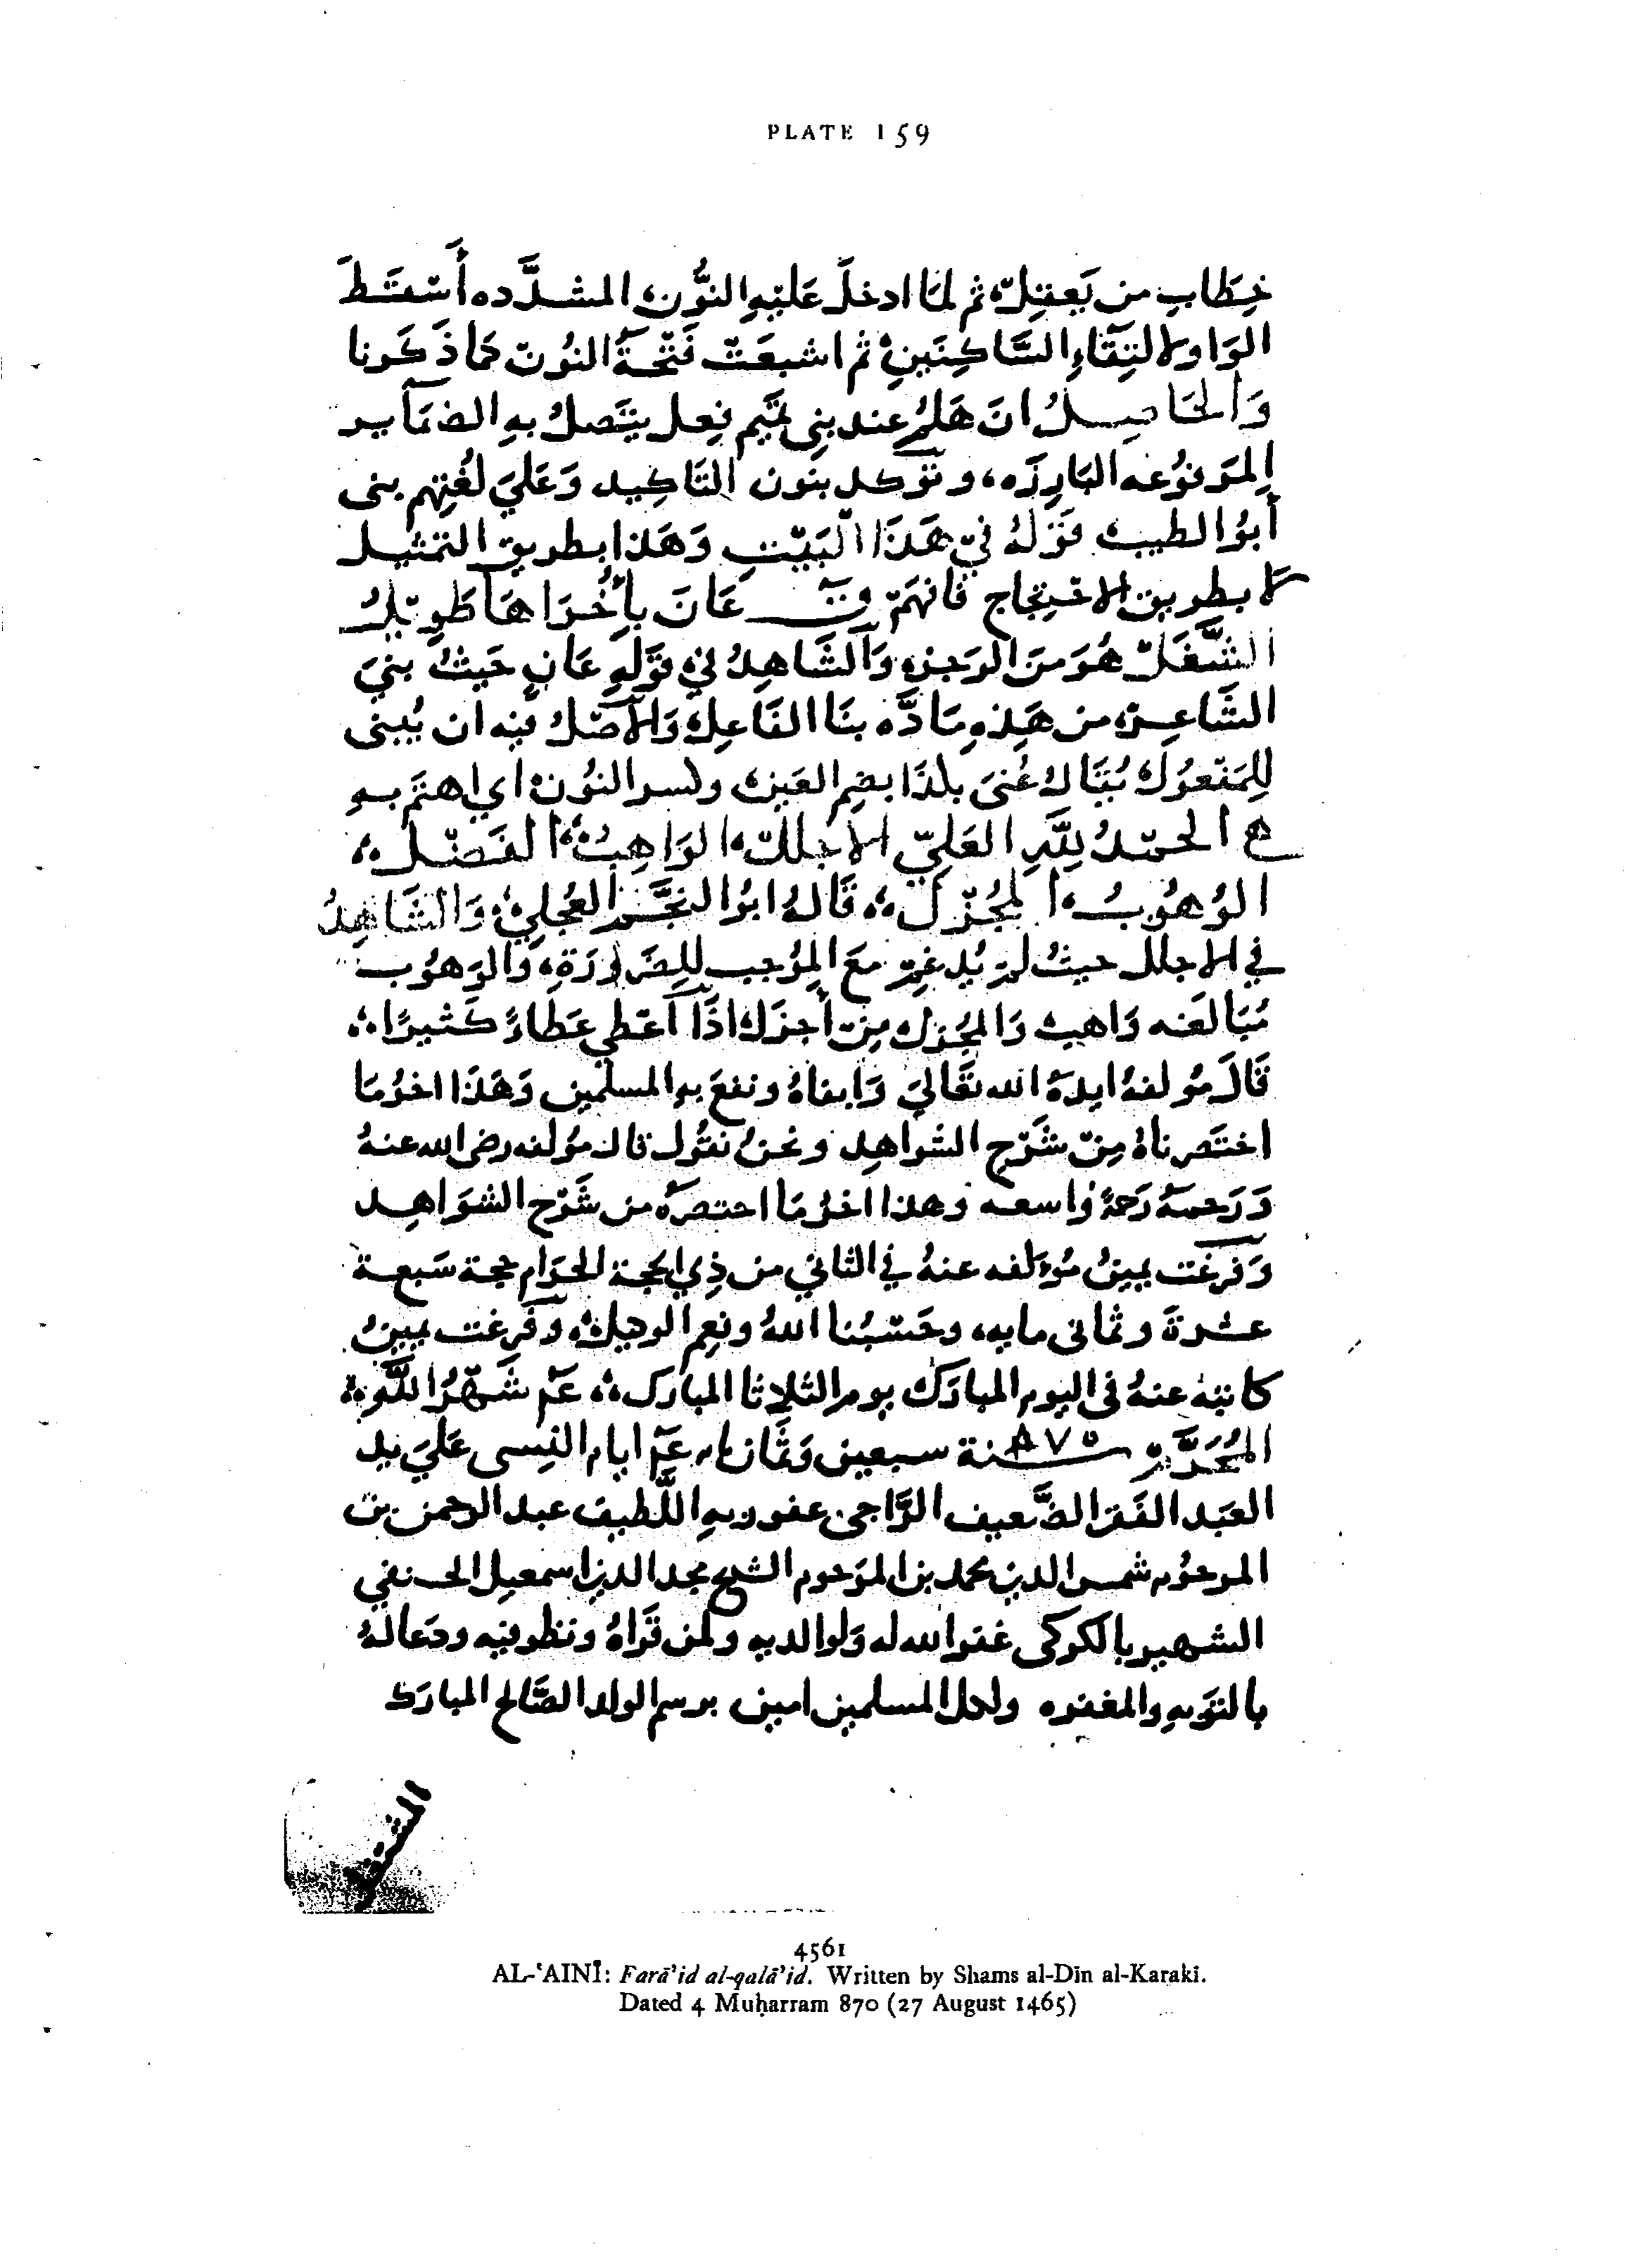 PLATE 159
خِطَابِ من يَعقِلُ، ثم لمَّا ادخلَ عَليْهِ النُّون المشدَّده أَسْقَطَ
الوَاو لالتِقَاءِ السَّاكِنَينِ، ثم اشبعَتْ فَتْحَةُ النُون كمَا ذَكَرنا
وَالحَاصِلُ انَ هَلُمَّ عند بنِي تَميم فِعل يتَّصلُ بهِ الضمَآير
المَرفوُعه البَارِزَه، وتؤكد بنون التَاكِيد وَعَليَ لغُتِهم بنى
أبوُ الطيب قَوْلهُ فِي هَذَا البَيْتِ وَهَذا بطريق التمثيل
لا بطريق الاحْتِجَاج فَانهَمْ ق عَانَ بِأُخْرَاهَا طَوِيْلُ
الشُّغْلْ هُوَ مِنَ الرَجز، وَالشَاهِدُ فِي قوْلهِ عَانٍ حَيثُ بنيَ
الشَاعِرُ من هَذِهِ مَادَّه بنَا الفَاعِل، وَالأصْلُ فيه ان يُبنى
للِمَفعوُل، يُقَالُ عُنىَ بكذَا بضم العَين، وكسر النوُن، اي اهتمَّ بهِ
ع الحمْدُ لِلَّهِ العَليّ الأَجْلَلْ، الوَاهِبُ، الفَضْلَ،
الوُهوُبُ، المُجْزِلْ، قَالهُ ابوُ النجَّم العِجْلي، وَالشَاهِدُ
في الاجلل حيثُ لمْ يُدغِمْ مَعَ المُوُجب للِضَرُورَةِ، وَالوَهوُب
مُبَالغَه وَاهب، وَالمجُزل مِنْ أجزَلَ اذَا أعْطي عَطَاءً كَثيرًا،
قَالَ مُولفهُ ايدهُ الله تعَاليَ وَابقاهُ ونفعَ بهِ المسلمين وَهَذا اخرُ مَا
اختَصرناهُ مِنْ شَرْح الشواهِد ونحنُ نَقُول قال مؤلفه رضى الله عنهُ
وَرَحمهُ رَحمةً وَاسعه وهذا اخرُ مَا اختصرَهُ من شَرْح الشوَاهِد
وَفرغَت يمينُ مُؤلفه عنهُ في الثاني من ذِي الحجة الحرَام حجة سَبعة
عشرةَ وثماني مايه، وحَسْبُنا اللهُ ونعِم الوكيل، وفرغت يمينُ
كاتبه عنهُ فى اليوم المبَارَك يوم الثلاثا المبَارك، عم شَهْرُ اللَّهِ
المُحَرَّم سنة ٨٧٠ سبعين وَثمَان ايام النِسى عَليَ يد
العَبد الفَقير الضَّعيف الرَّاجى عفو ربهِ اللَّطيف عبد الرحمن بن
المرحوُم شمس الدين محمد بن المرَحوم الشيخ مجد الدين اسمعيل الحنفي
الشهير بالكركى غفر الله له وَلوالديه ولمن قَراهُ ونظر فيه ودعَا لهُ
بالتوَبهِ والمغفره ولكل المسلمين امين برسم الولد الصَّالح المبارَك
4561
AL-ʿAINĪ: Farāʾid al-qalāʾid. Written by Shams al-Dīn al-Karakī.
Dated 4 Muḥarram 870 (27 August 1465)